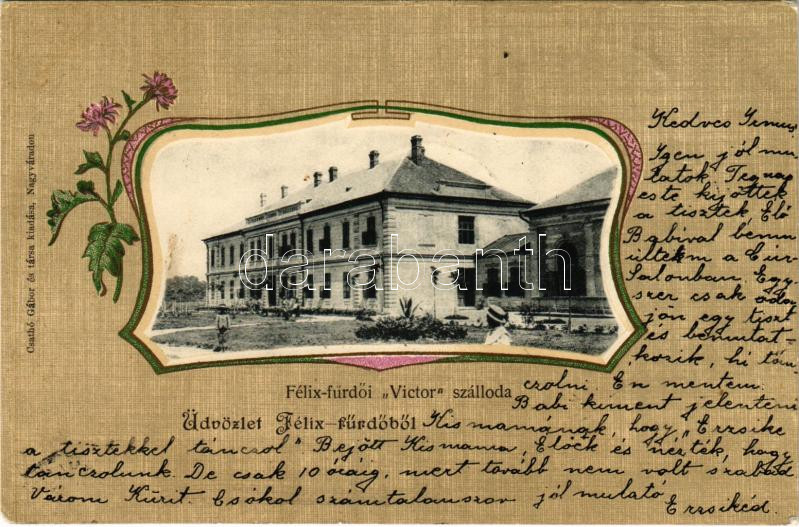 Csathó Gábor és társa kiadása, Nagyváradon
darabanth
Félix-fürdői „Victor" szálloda
Üdvözlet Félix-fürdőből
Kedves Irmus,
Igen jól mu
latok. Tegnap
este kijöttek
a tisztek Elő
Babival benn
ültem a Cúr
Salonban. Egy
szer csak oda
jön egy tiszt
és bemutat-
kozik, hi tán
czolni. En mentem.
Babi kiment jelenteni
Kismamának, hogy „Erzsike
a tisztekkel tánczol" Bejött Kismama, Előék és nézték, hogy
tánczolunk. De csak 10 óráig, mert tovább nem volt szabad
Várom Kürit. Csókol számtalanszor jól mulató
Erzsikéd.